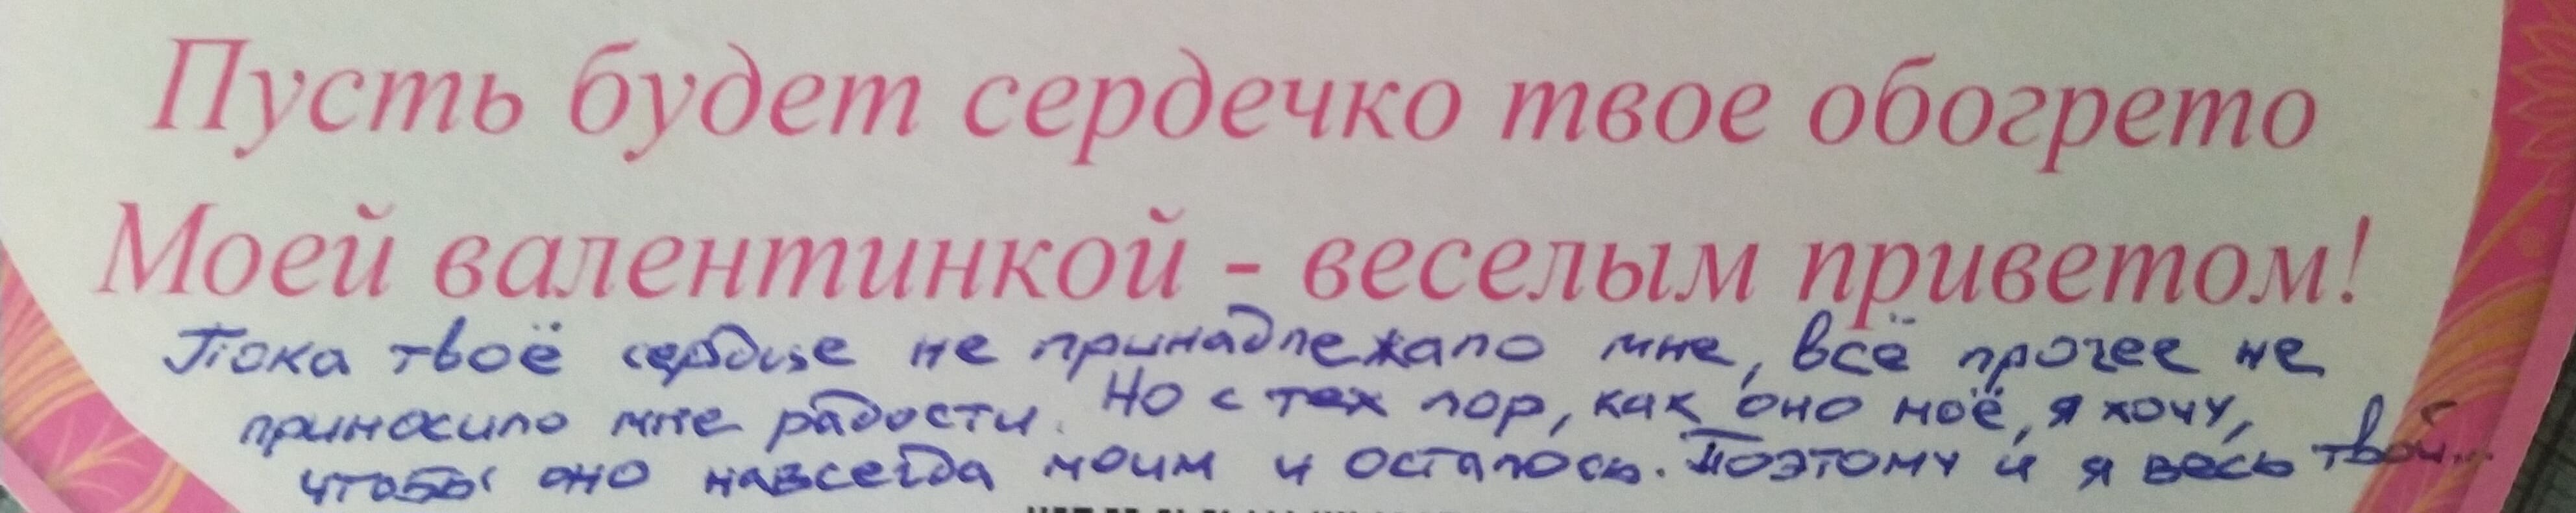 Пусть будет сердечко твое обогрето
Моей валентинкой - веселым приветом!
Пока твоё сердце не принадлежало мне, всё прочее не
приносило мне радости. Но с тех пор, как оно моё, я хочу,
чтобы оно навсегда моим и осталось. Поэтому и я весь твой...